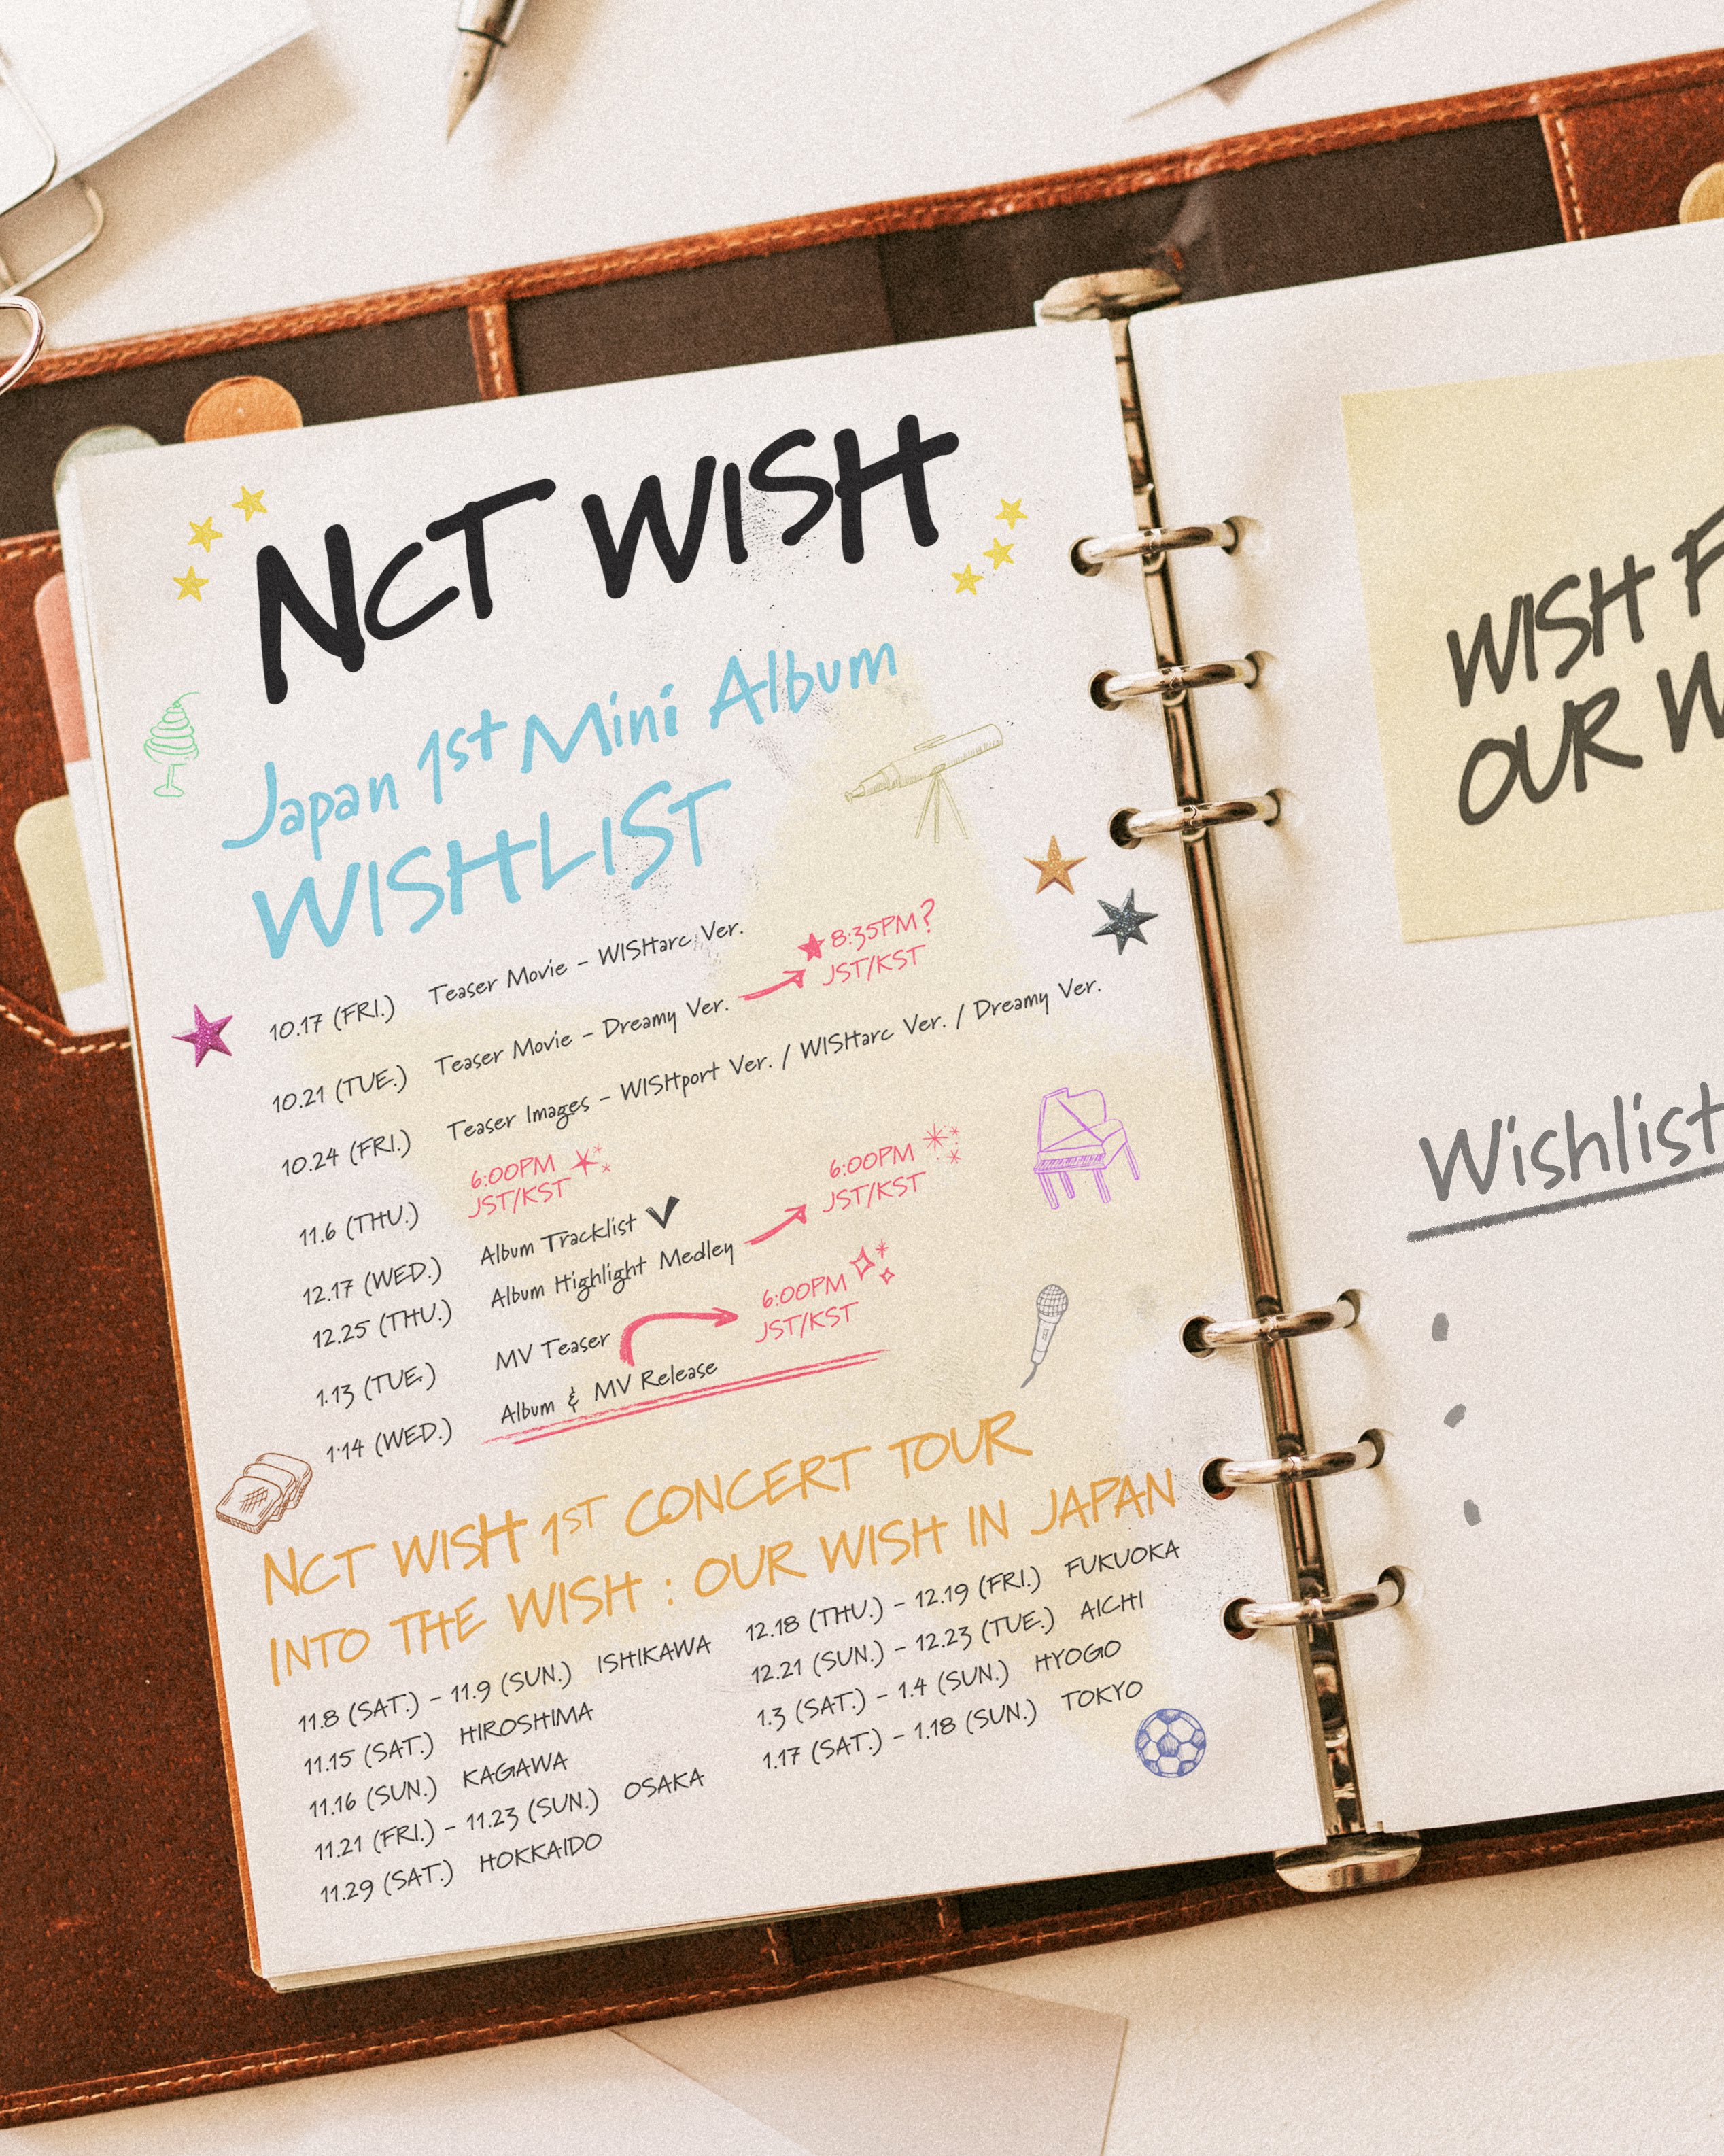 NCT WISH
Japan 1st Mini Album
WISHLIST
10.17 (FRI.) Teaser Movie - WISHarc Ver.
10.21 (TUE.) Teaser Movie - Dreamy Ver. 8:35PM?
JST/KST
10.24 (FRI.) Teaser Images - WISHport Ver. / WISHarc Ver. / Dreamy Ver.
11.6 (THU.) 6:00PM
JST/KST
12.17 (WED.) Album Tracklist
12.25 (THU.) Album Highlight Medley 6:00PM
JST/KST
1.13 (TUE.) MV Teaser
1.14 (WED.) Album & MV Release 6:00PM
JST/KST
NCT WISH 1ST CONCERT TOUR
INTO THE WISH : OUR WISH IN JAPAN
11.8 (SAT.) - 11.9 (SUN.) ISHIKAWA
11.15 (SAT.) HIROSHIMA
11.16 (SUN.) KAGAWA
11.21 (FRI.) - 11.23 (SUN.) OSAKA
11.29 (SAT.) HOKKAIDO
12.18 (THU.) - 12.19 (FRI.) FUKUOKA
12.21 (SUN.) - 12.23 (TUE.) AICHI
1.3 (SAT.) - 1.4 (SUN.) HYOGO
1.17 (SAT.) - 1.18 (SUN.) TOKYO
WISH
OUR
Wishlist